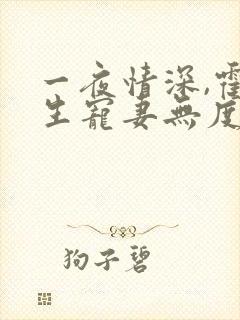 一夜情深,霍
生寵妻無度
狗子碧